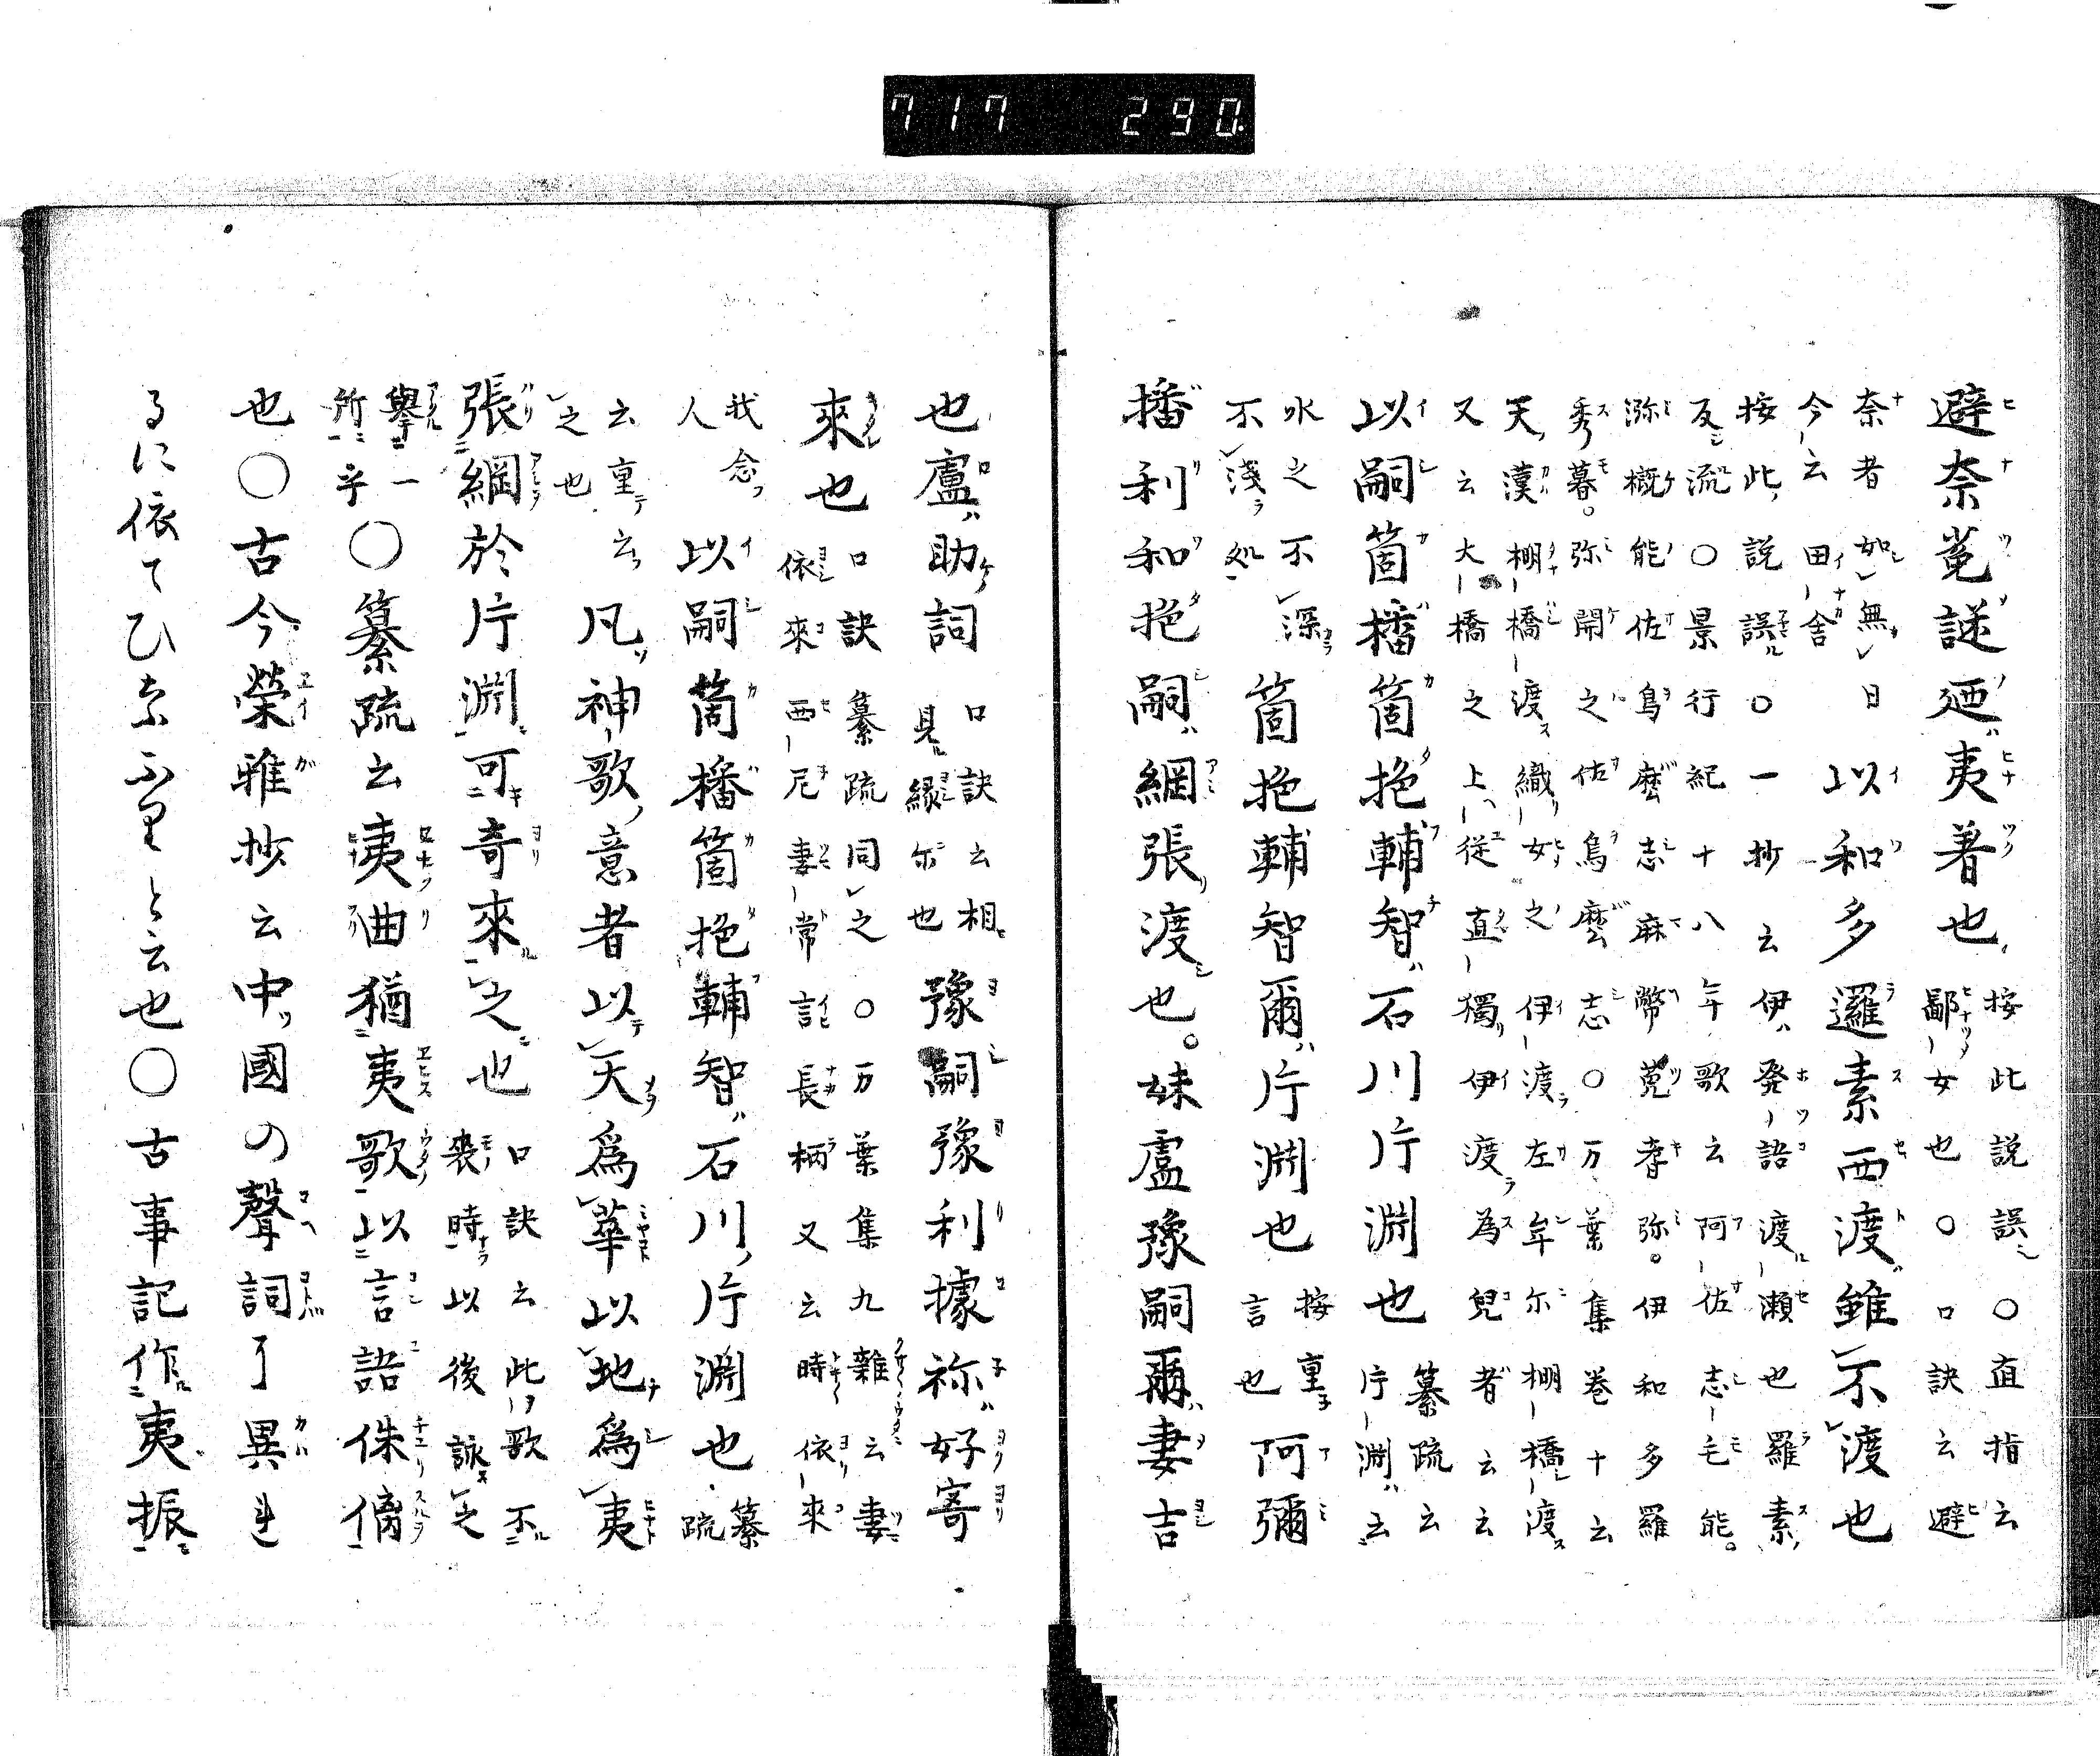 717 290
避奈菟謎廼夷着也
按此説誤〇直指云
鄙女也〇口訣云避
奈者如無日
今云田舎
以和多邏素西渡雖不渡也
按此説誤〇一抄云伊発語渡瀬也羅素
反流〇景行紀十八年歌云阿佐志毛能
弥概能佐烏麼志麻幣菟耆弥伊和多羅
秀暮弥開之佐烏麼志〇万葉集巻十云
天漢棚橋渡織女之伊渡左年尓棚橋渡
又云大橋之上従直獨伊渡為兒者云云
以嗣箇播箇拖輔智石川片淵也
纂疏云
片淵云
水之不深
不浅処
箇拖輔智爾片淵也
按重
言也
阿彌
播利和拖嗣網張渡也妹盧豫嗣爾妻吉
也盧助詞
口訣云相
見縁尓也
豫嗣豫利據祢好寄
來也
口訣纂疏同之〇万葉集九雑云妻
依來西尼妻常言長柄又云時依來
我念
人
以嗣箇播箇拖輔智石川片淵也
纂
疏
云重云
之也
凡神歌意者以天為華以地為夷
張網於片淵可奇來之也
口訣云此歌不
裳時以後詠之
擧一
所乎
〇纂疏云夷曲猶夷歌以言語侏㒧
也〇古今榮雅抄云中國の聲詞了異れ
るに依てひなふりと云也〇古事記作夷振